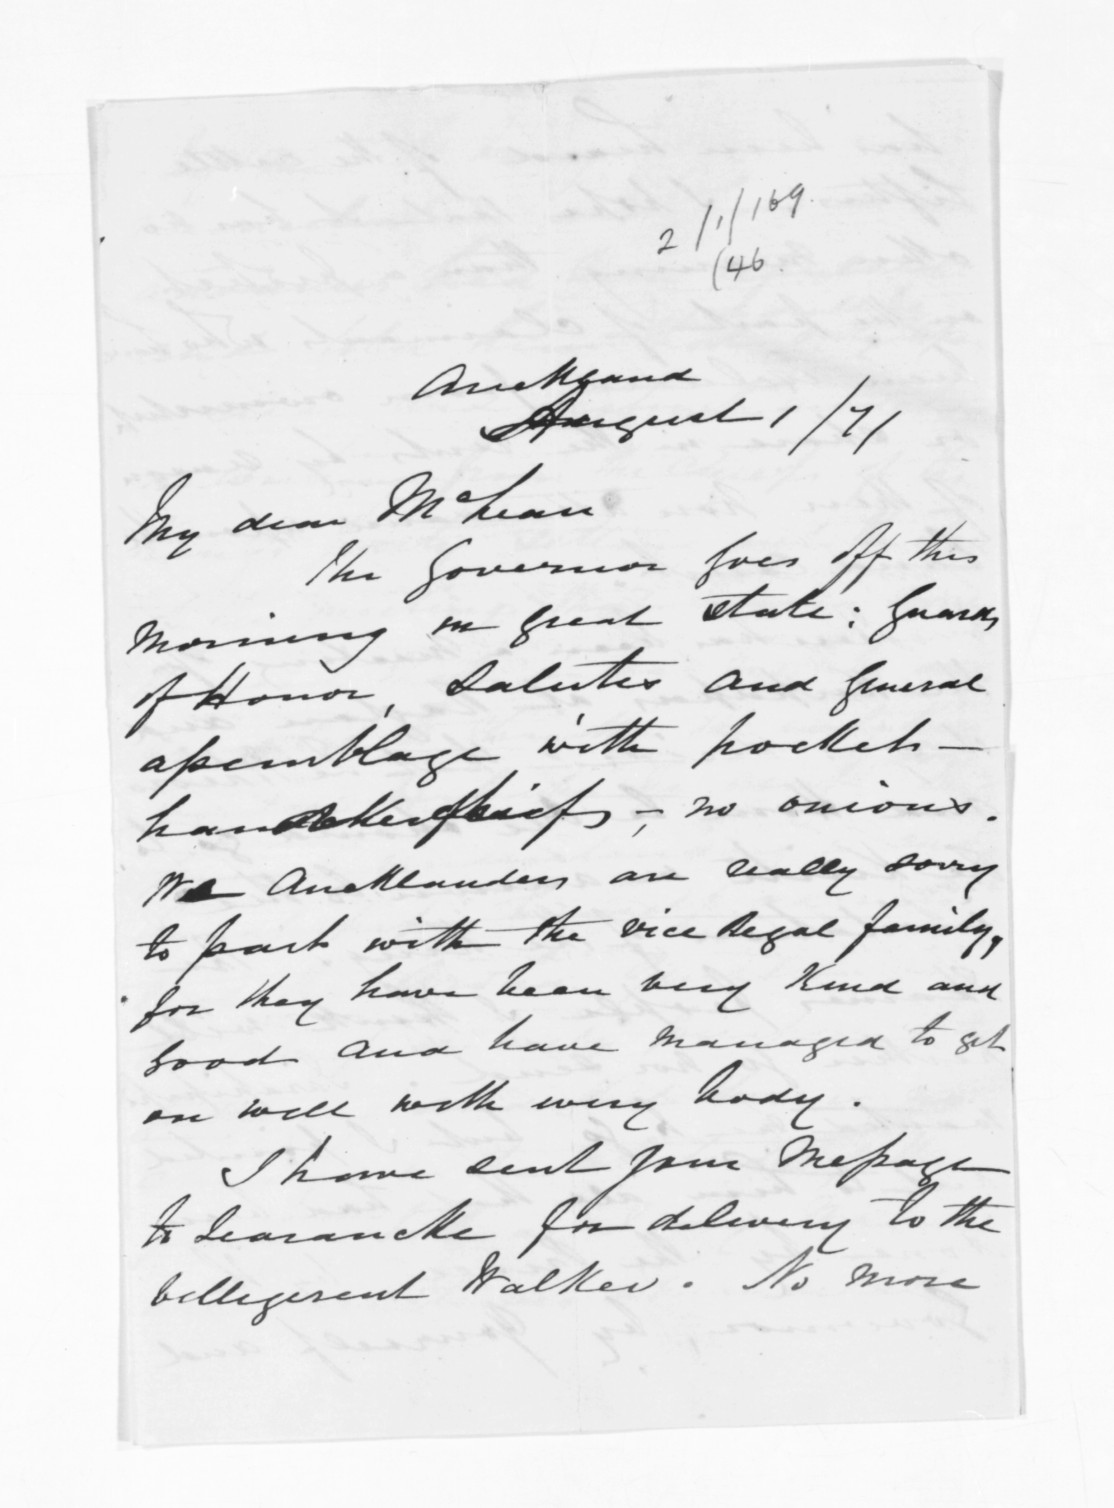 2/1/169
(46
Auckland
August 1/71
My dear McLean
The Governor goes off this
morning in great state: Guards
of Honor, Salutes and General
assemblage with pocket-
handkerchiefs, - no onions.
We Aucklanders are really sorry
to part with the vice Regal family,
for they have been very kind and
good and have managed to get
on well with every body.
I have sent your message
to Searancke for delivery to the
belligerent Walker. No more